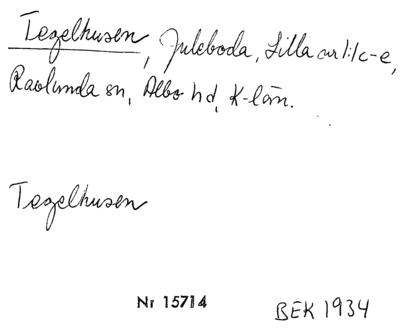 Tegelhusen, Juleboda, Lilla
Ravlunda sn, Albo hd, K-län.
Tegelhusen
Nr 15714
BEK 1934